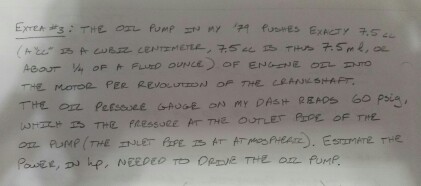 EXTRA #3: THE OIL PUMP IN MY '79 PUSHES EXACTLY 7.5 cc
(A "CC" IS A CUBIC CENTIMETER, 7.5 cc IS THUS 7.5 ml, OR
ABOUT 1/4 OF A FLUID OUNCE) OF ENGINE OIL INTO
THE MOTOR PER REVOLUTION OF THE CRANKSHAFT.
THE OIL PRESSURE GAUGE ON MY DASH READS 60 psig,
WHICH IS THE PRESSURE AT THE OUTLET PIPE OF THE
OIL PUMP (THE INLET PIPE IS AT ATMOSPHERIC). ESTIMATE THE
POWER, IN hp, NEEDED TO DRIVE THE OIL PUMP.